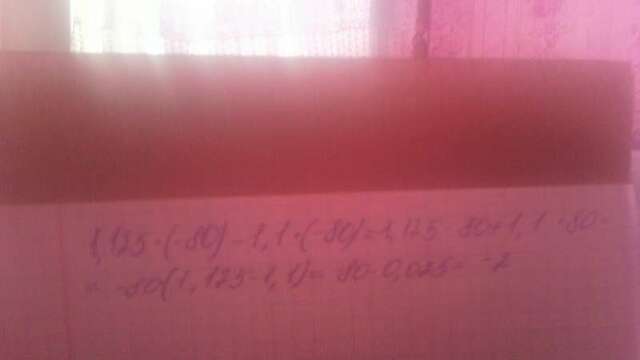 1,125·(-80)-1,1·(-80)=1,125 80+1,1·80=
= -80(1,125-1,1)= 80·0,025= -2